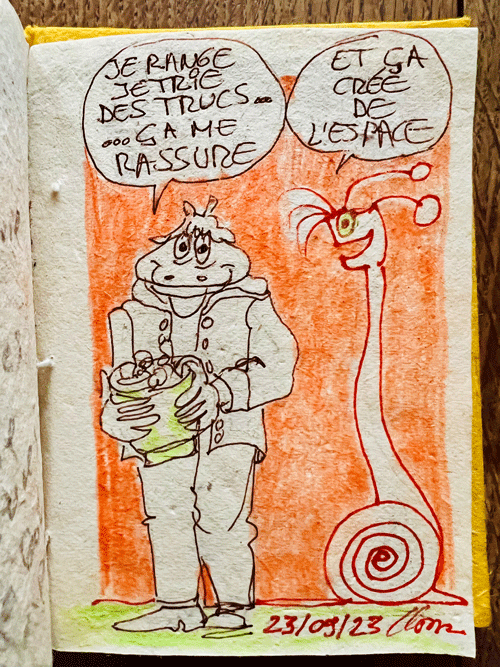 JE RANGE
JE TRIE
DES TRUCS...
...ÇA ME
RASSURE
ET ÇA
CRÉE
DE
L'ESPACE
23/09/23